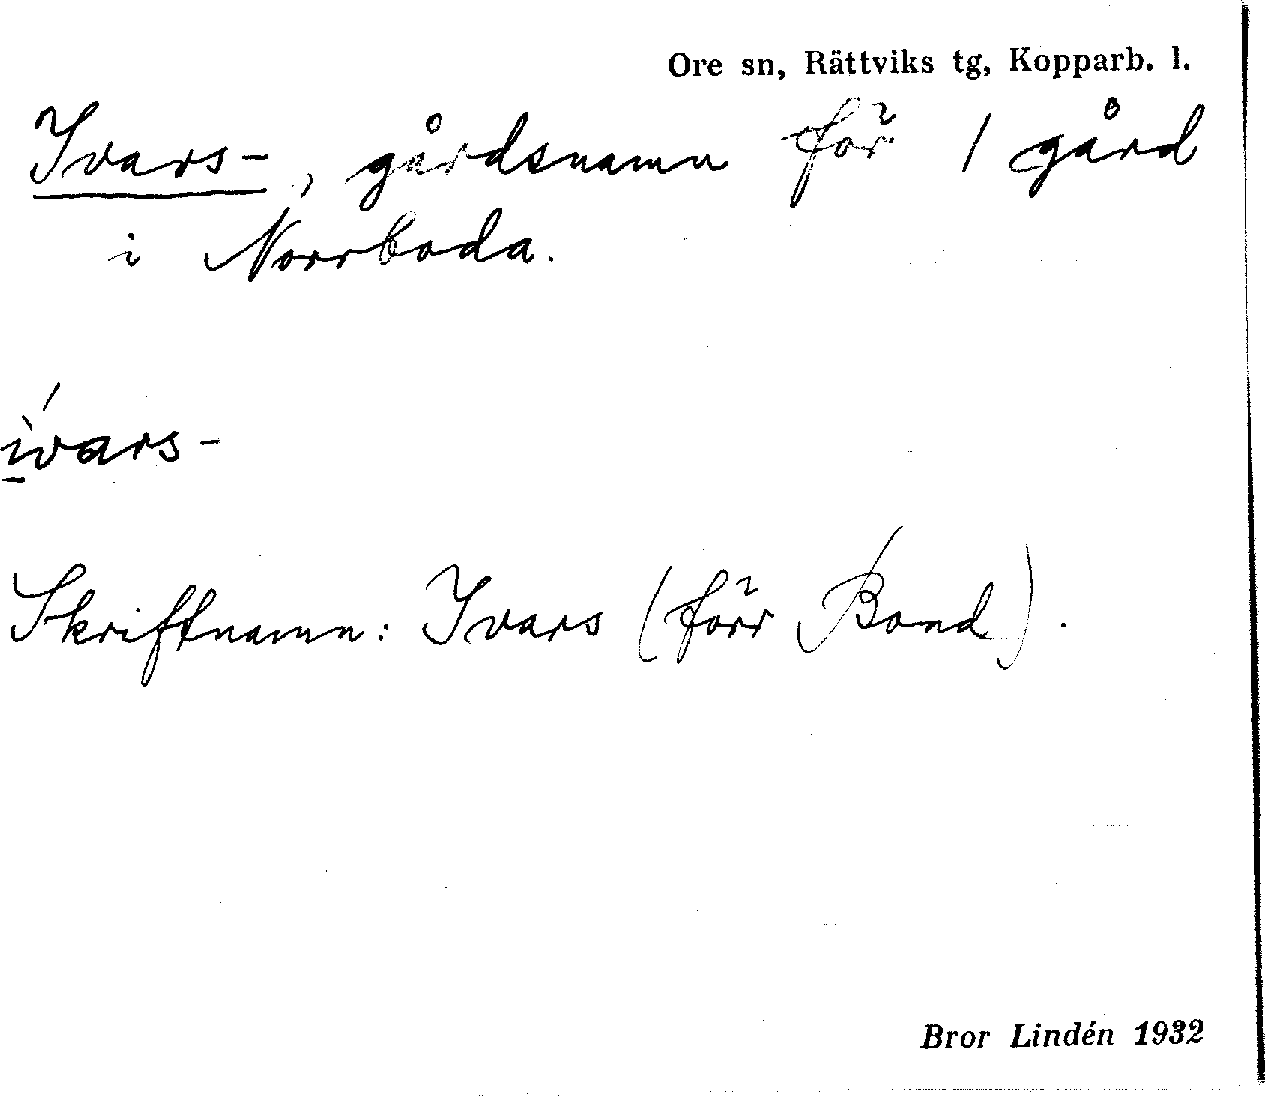 Ore sn, Rättviks tg, Kopparb. l.
Ivars-, gårdsnamn för 1 gård
i Norrboda.
ì́vars-
Skriftnamn: Ivars (förr Bond).
Bror Lindén 1932